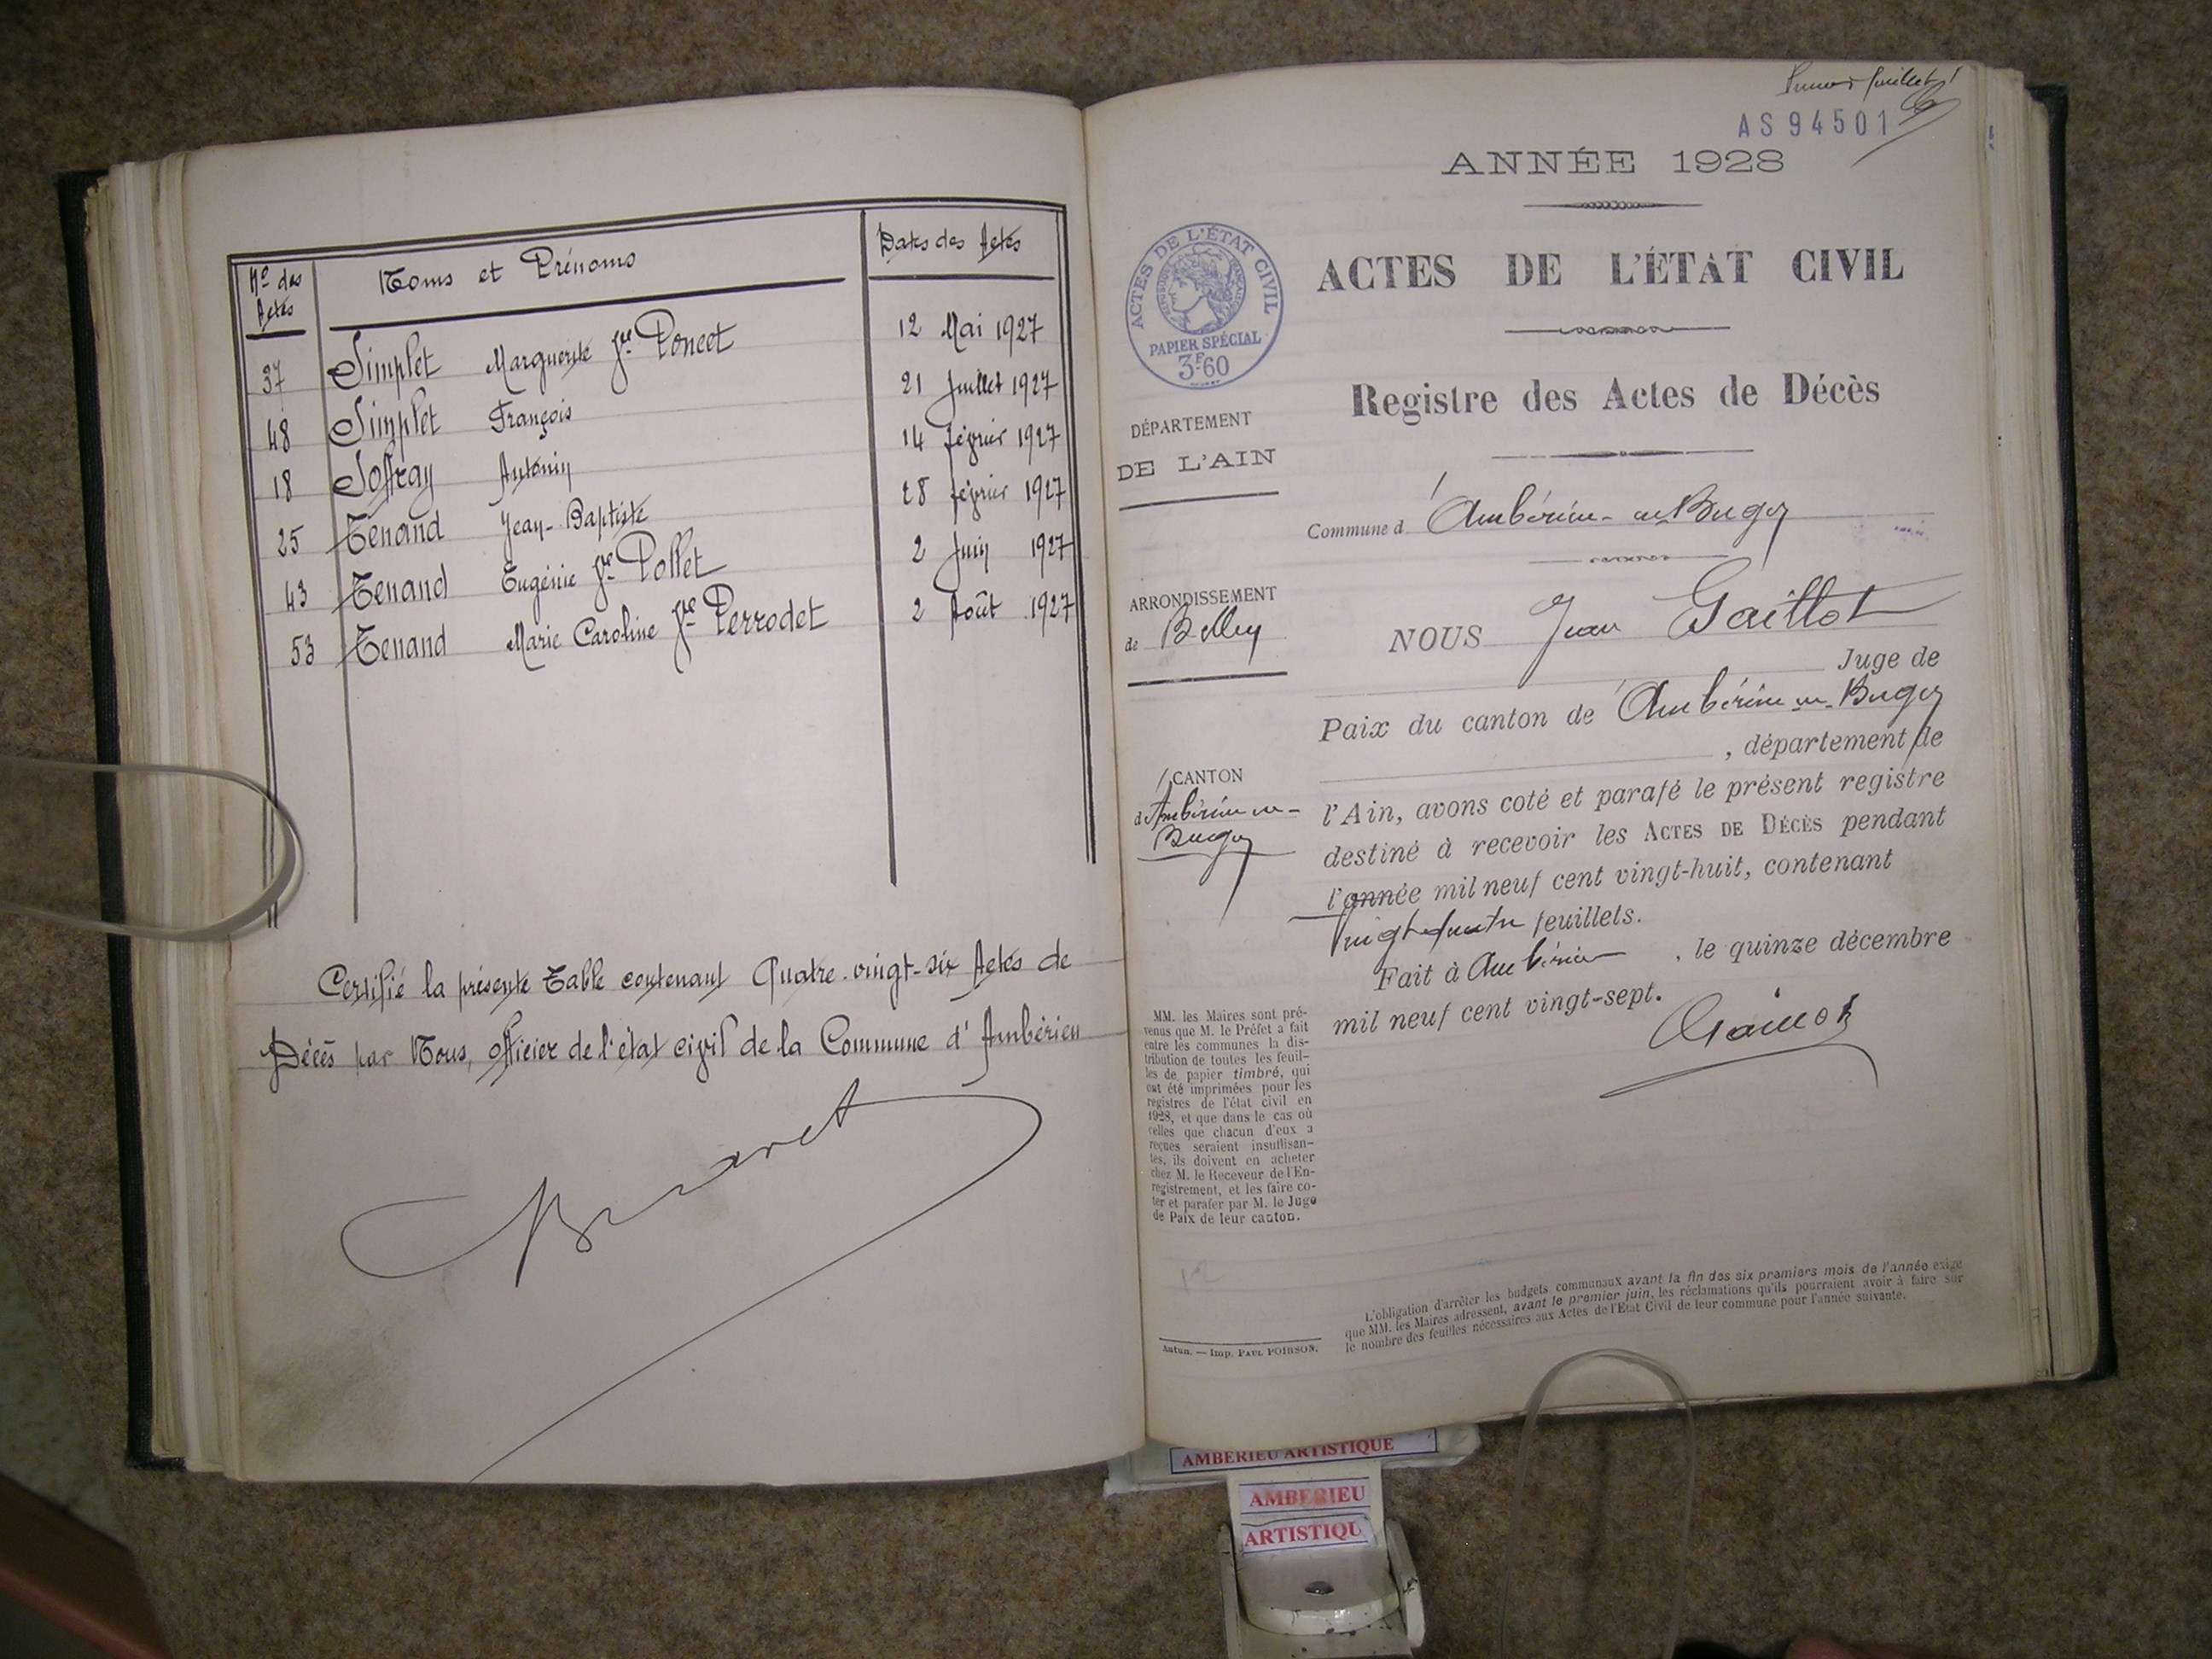 Nº des Actes
Noms et Prénoms
Dates des Actes
37 Simplet Marguerite fe Poncet 12 Mai 1927
48 Simplet François 21 Juillet 1927
18 Soffray Antonin 14 février 1927
25 Tenand Jean-Baptiste 28 février 1927
43 Tenand Eugénie fe Pollet 2 Juin 1927
53 Tenand Marie Caroline fe Perrodet 2 Août 1927
Certifié la présente Table contenant Quatre-vingt-six Actes de
Décès par Nous, officier de l'état civil de la Commune d'Ambérieu
feuillet
AS94501
ANNÉE 1928
ACTES DE L'ÉTAT CIVIL
PAPIER SPÉCIAL
3F60
ACTES DE L'ÉTAT CIVIL
Registre des Actes de Décès
DÉPARTEMENT
DE L'AIN
Commune d'Ambérieu-en-Bugey
ARRONDISSEMENT
de Belley
NOUS Jean Gaillot
Juge de
Paix du canton de Ambérieu-en-Bugey
, département de
CANTON
d'Ambérieu-en-
Bugey
l'Ain, avons coté et parafé le présent registre
destiné à recevoir les ACTES DE DÉCÈS pendant
l'année mil neuf cent vingt-huit, contenant
Vingt-quatre feuillets.
Fait à Ambérieu, le quinze décembre
mil neuf cent vingt-sept.
MM. les Maires sont pré-
venus que M. le Préfet a fait
entre les communes la dis-
tribution de toutes les feuil-
les de papier timbré, qui
ont été imprimées pour les
registres de l'état civil en
1928, et que dans le cas où
celles que chacun d'eux a
reçues seraient insuffisan-
tes, ils doivent en acheter
chez M. le Receveur de l'En-
registrement, et les faire co-
ter et parafer par M. le Juge
de Paix de leur canton.
L'obligation d'arrêter les budgets communaux avant la fin des six premiers mois de l'année exige
que MM. les Maires adressent, avant le premier juin, les réclamations qu'ils pourraient avoir à faire sur
le nombre des feuilles nécessaires aux Actes de l'État Civil de leur commune pour l'année suivante.
Autun. — Imp. PAUL POIRSON.
AMBERIEU ARTISTIQUE
AMBERIEU
ARTISTIQU